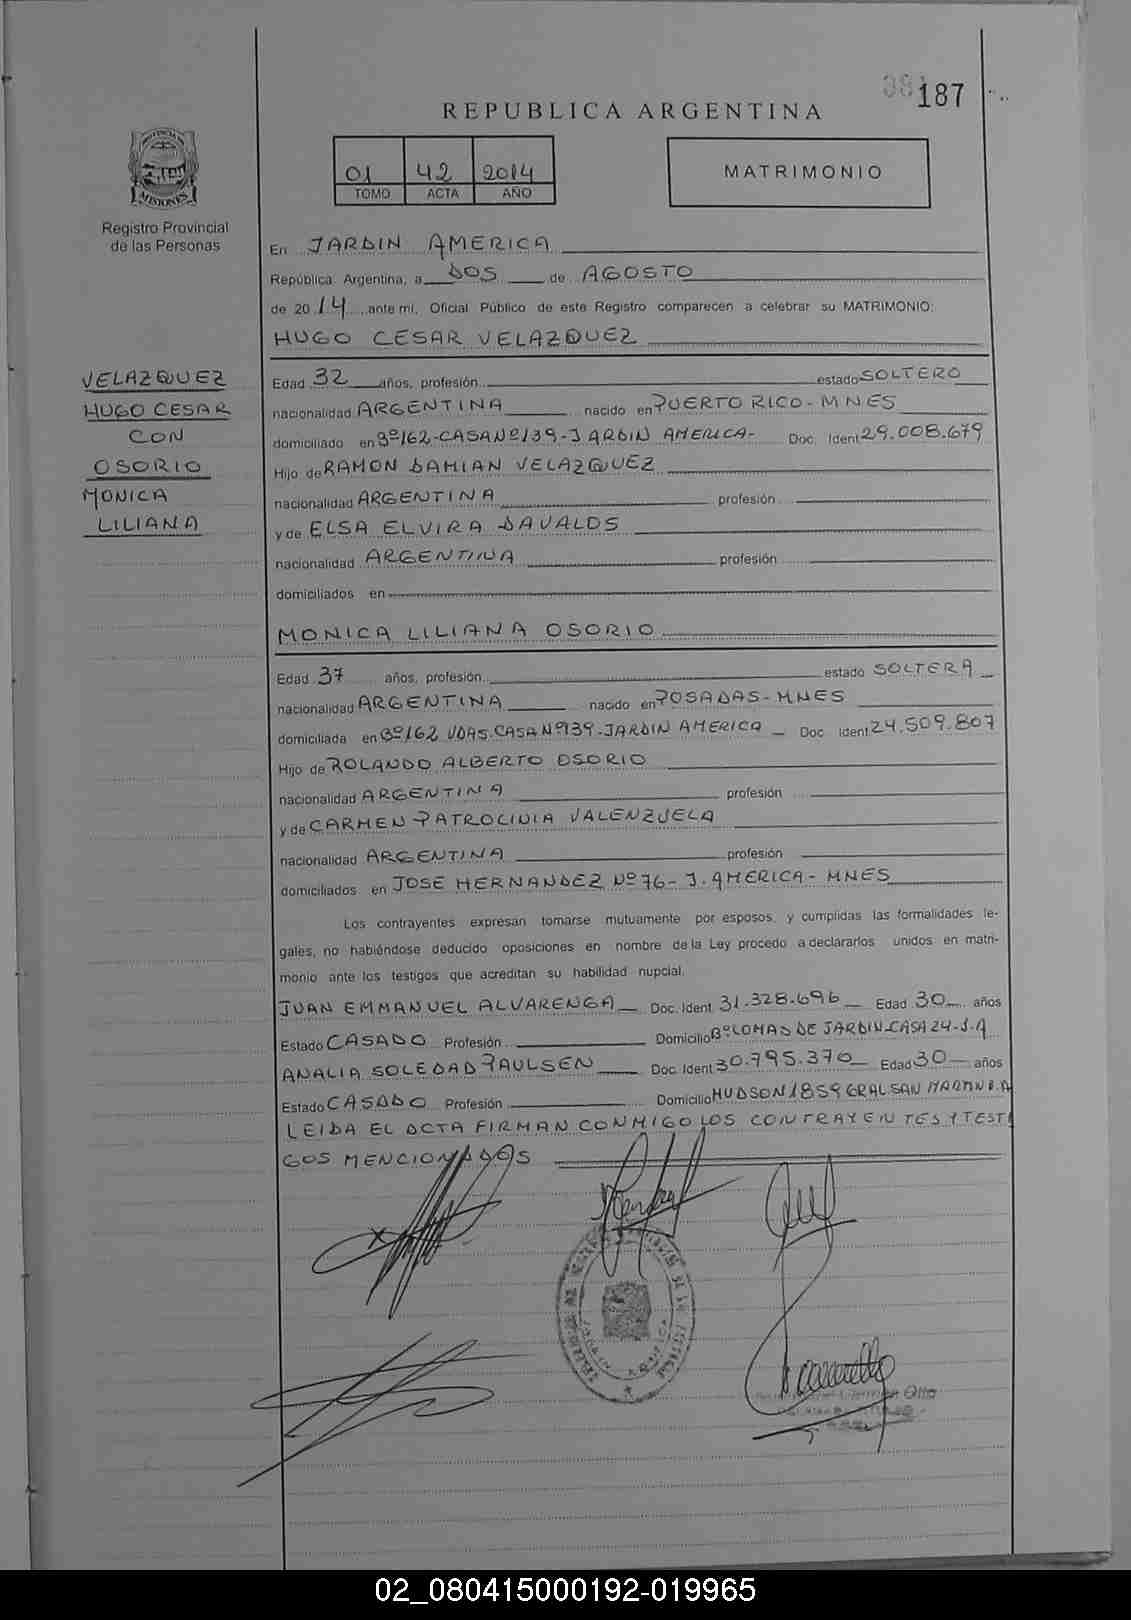 187
REPUBLICA ARGENTINA
01 42 2014
TOMO ACTA AÑO
MATRIMONIO
MISIONES
Registro Provincial
de las Personas
En JARDIN AMERICA
República Argentina, a DOS de AGOSTO
de 2014 ante mi, Oficial Público de este Registro comparecen a celebrar su MATRIMONIO:
HUGO CESAR VELAZQUEZ
VELAZQUEZ
HUGO CESAR
CON
OSORIO
MONICA
LILIANA
Edad 32 años, profesión estado SOLTERO
nacionalidad ARGENTINA nacido en PUERTO RICO-MNES
domiciliado en Bº162-CASA Nº139-JARDIN AMERICA- Doc. Ident 29.008.679
Hijo de RAMON DAMIAN VELAZQUEZ
nacionalidad ARGENTINA profesión
y de ELSA ELVIRA DAVALOS
nacionalidad ARGENTINA profesión
domiciliados en
MONICA LILIANA OSORIO
Edad 37 años, profesión estado SOLTERA
nacionalidad ARGENTINA nacido en POSADAS-MNES
domiciliada en Bº162 VDAS.CASA Nº139-JARDIN AMERICA Doc. Ident 24.509.807
Hijo de ROLANDO ALBERTO OSORIO
nacionalidad ARGENTINA profesión
y de CARMEN PATROCINIA VALENZUELA
nacionalidad ARGENTINA profesión
domiciliados en JOSE HERNANDEZ Nº76-J.AMERICA-MNES
Los contrayentes expresan tomarse mutuamente por esposos, y cumplidas las formalidades le-
gales, no habiéndose deducido oposiciones en nombre de la Ley procedo a declararlos unidos en matri-
monio ante los testigos que acreditan su habilidad nupcial.
JUAN EMMANUEL ALVARENGA Doc. Ident 31.328.696 Edad 30 años
Estado CASADO Profesión Domicilio Bº LOMAS DE JARDIN-CASA 24-J.A
ANALIA SOLEDAD PAULSEN Doc. Ident 30.795.370 Edad 30 años
Estado CASADO Profesión Domicilio HUDSON 1859 GRAL SAN MARTIN B.A
LEIDA EL ACTA FIRMAN CONMIGO LOS CONTRAYENTES Y TESTI
GOS MENCIONADOS
02_080415000192-019965